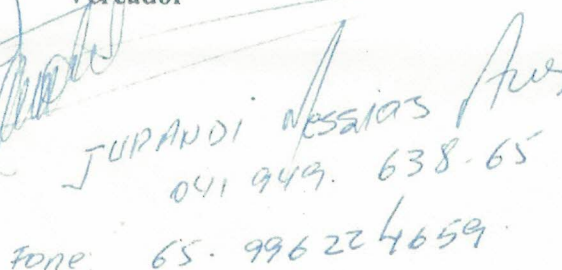 Vereador
JURANDI Messias
041 949. 638-65
Fone 65. 996224659.